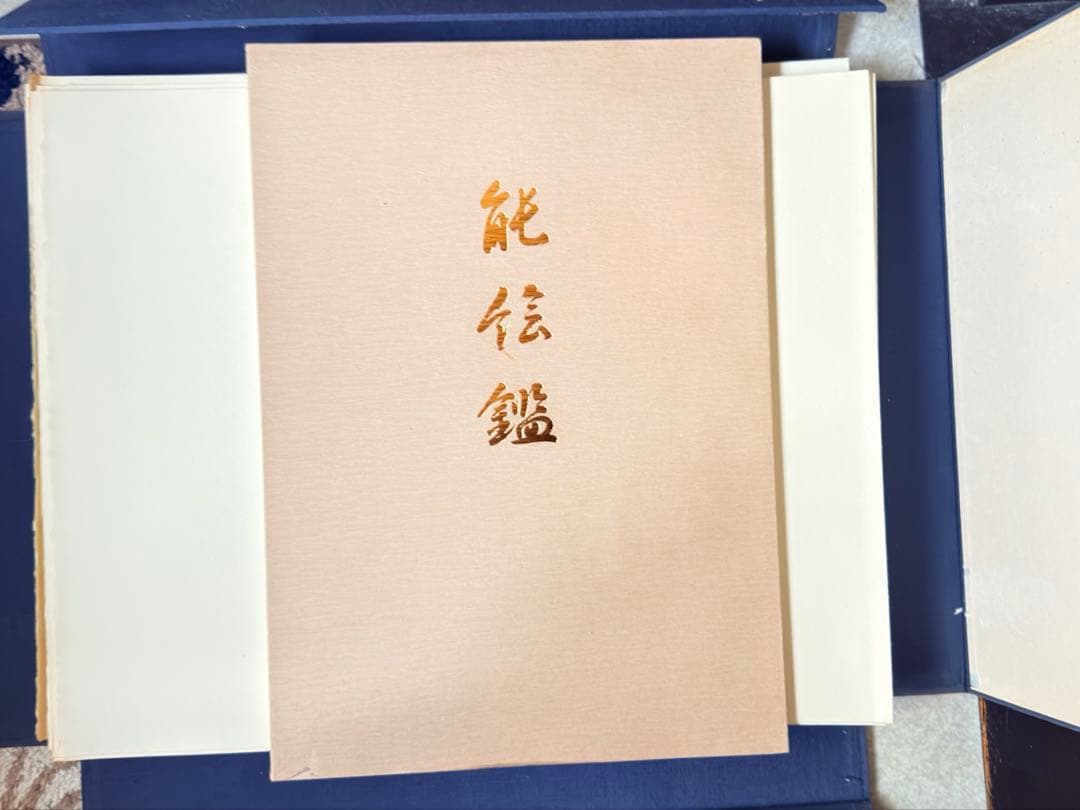 能絵鑑